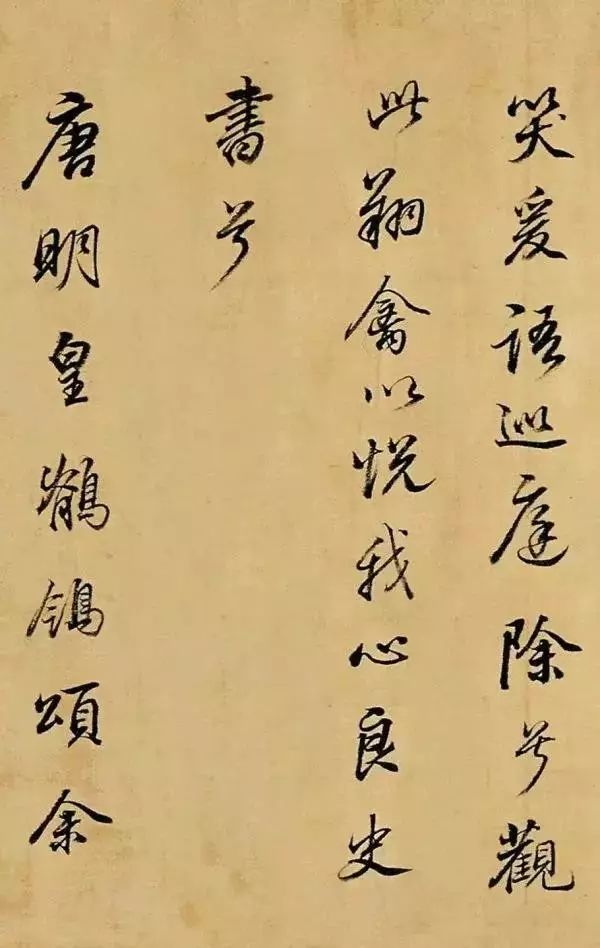 笑爰語巡庭除兮觀
此翔禽以悦我心良史
書兮
唐明皇鶺鴒頌余